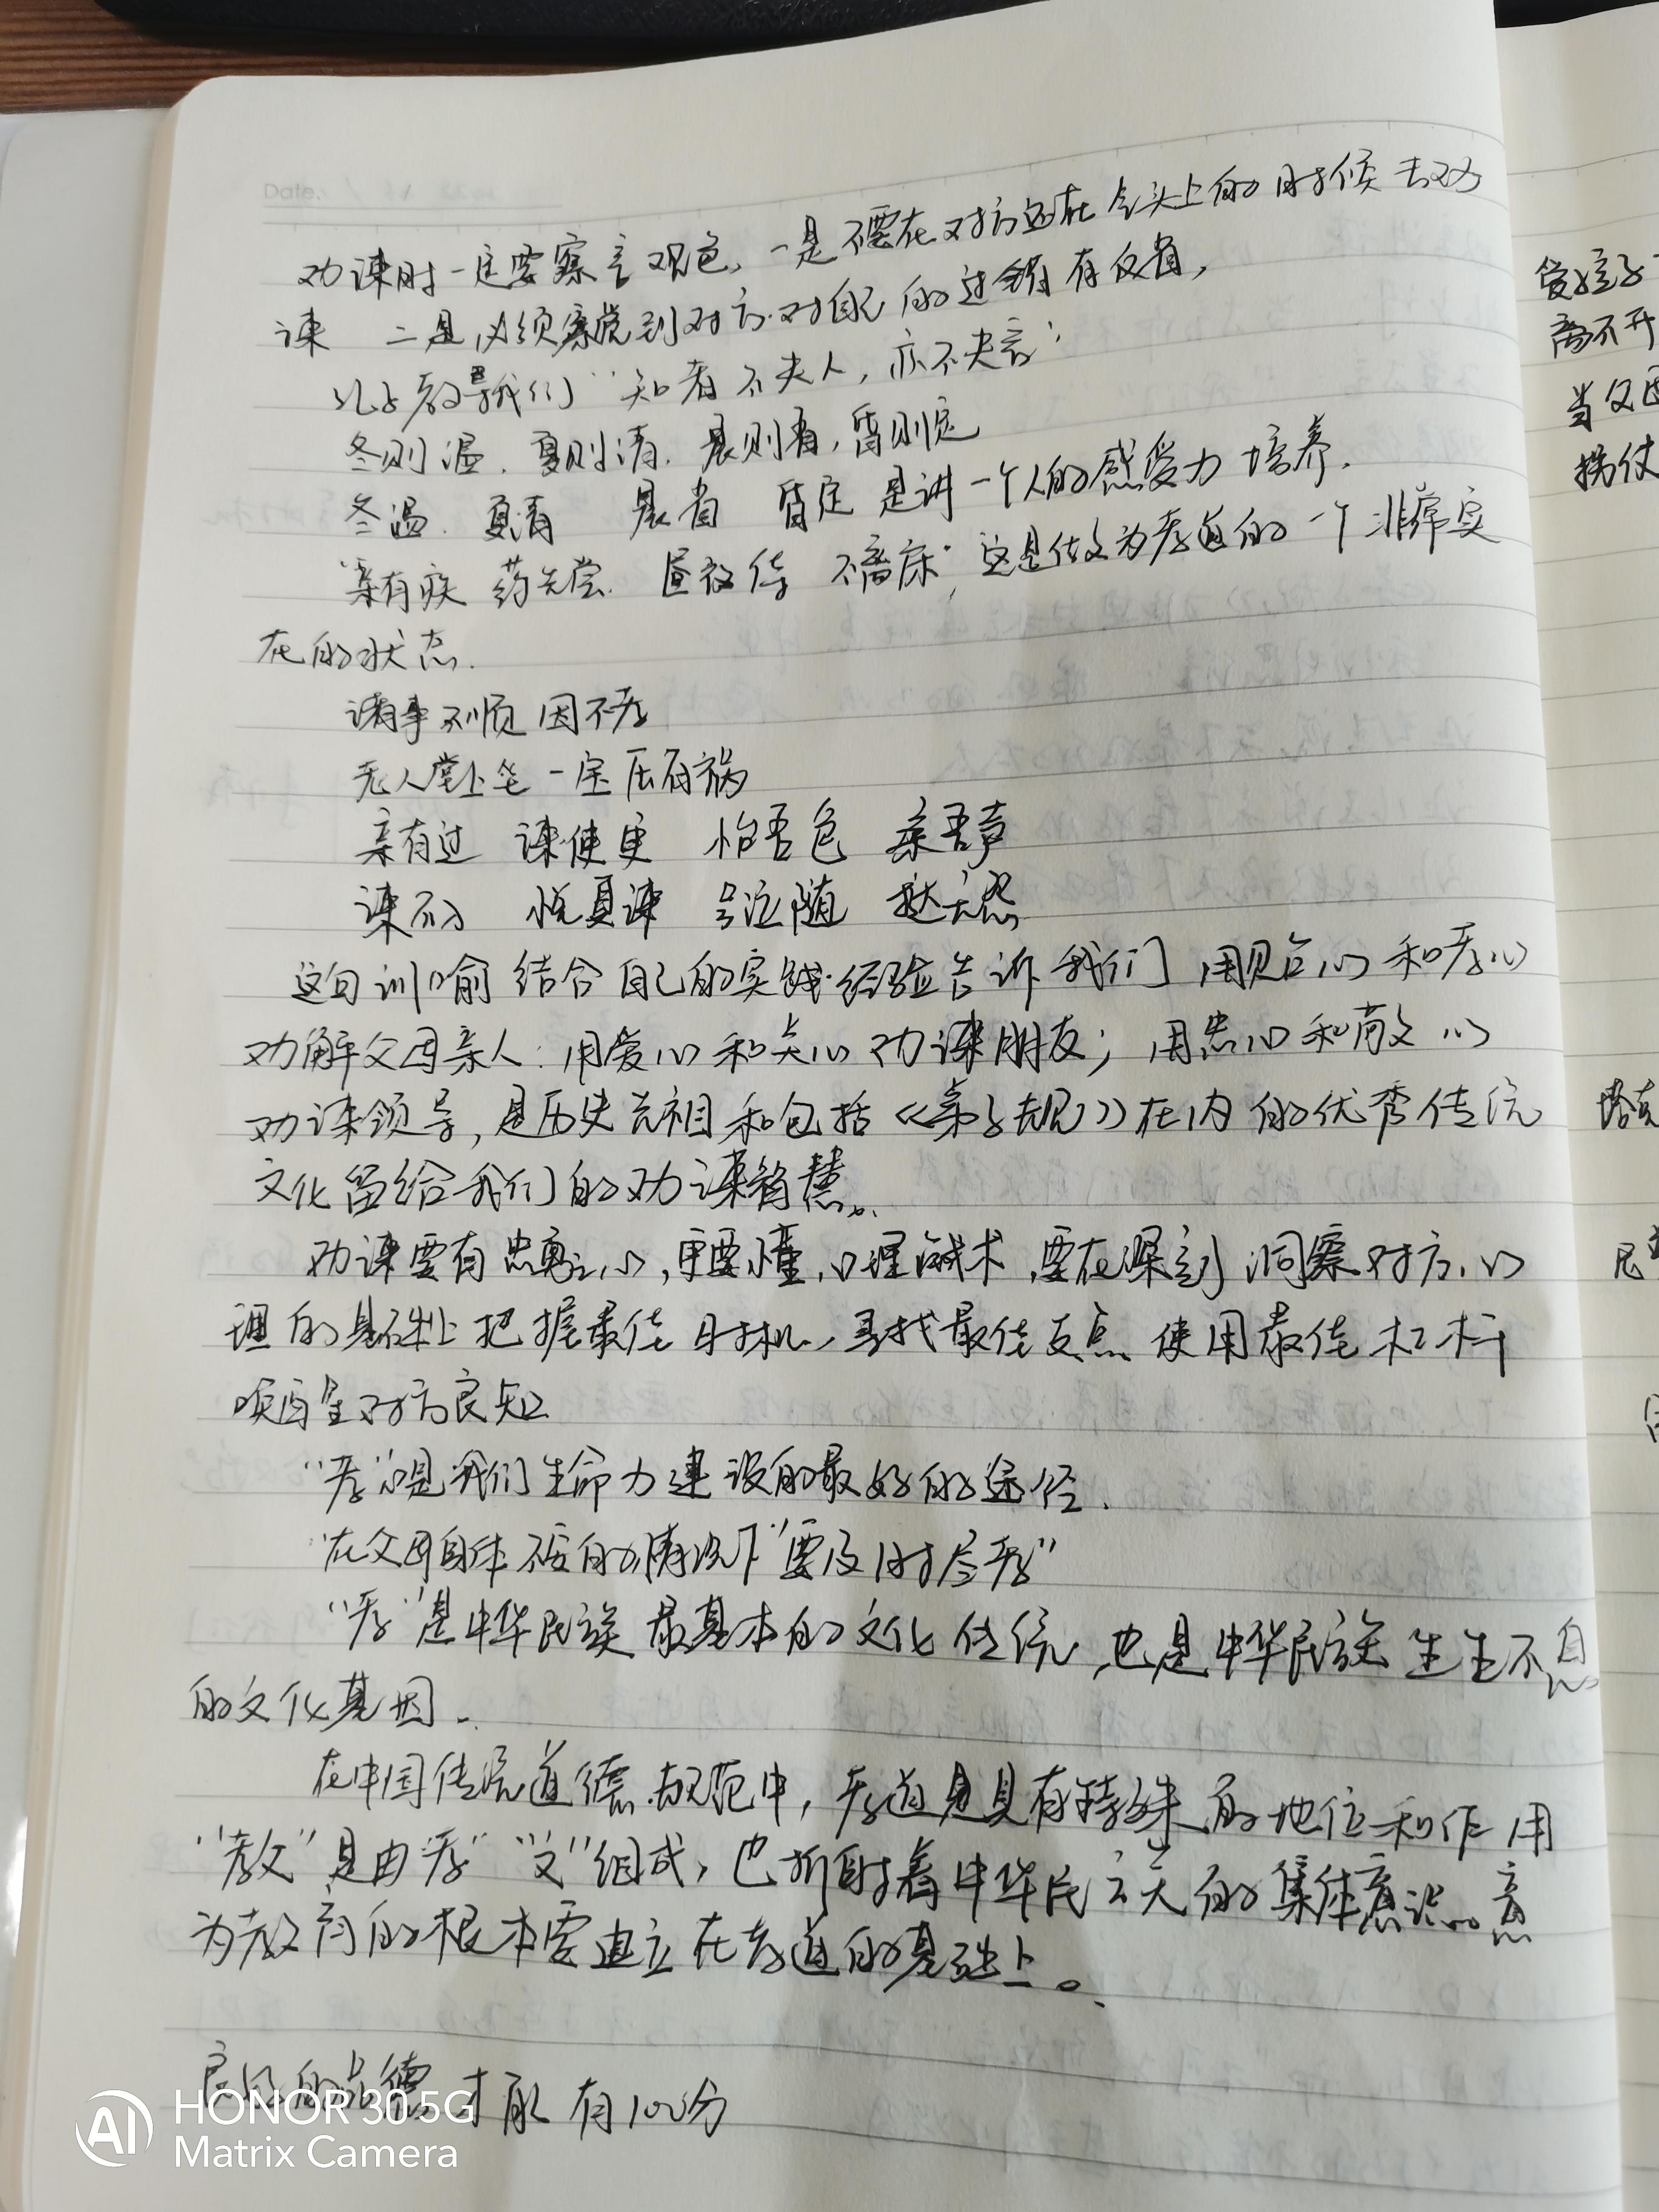 Date.
劝谏时一定要察言观色,一是不要在对方还在气头上的时候去劝
谏 二是必须察觉到对方对自己的过错有反省,
孔子教导我们“知者不失人,亦不失言”
冬则温.夏则清.晨则省,昏则定
冬温.夏清 晨省 昏定 是讲一个人的感受力培养.
“亲有疾 药先尝.昼夜侍 不离床”,这是做为孝道的一个非常实
在的状态.
诸事不顺因不孝
无人堂上坐 一定压有祸
亲有过 谏使更 怡吾色 柔吾声
谏不入 悦复谏 号泣随 挞无怨
这句训喻结合自己的实践经验告诉我们 用贝占心和孝心
劝解父母亲人.用爱心和关心劝谏朋友;用忠心和敬心
劝谏领导,是历史先祖和包括《弟子规》在内的优秀传统
文化留给我们的劝谏智慧。
劝谏要有忠勇之心,更要懂心理战术,要在深刻洞察对方心
理的基础上把握最佳时机,寻找最佳支点 使用最佳杠杆
唤醒对方良知
“孝”是我们生命力建设的最好的途径.
“在父母身体不安的情况下“要及时尽孝”
“孝”是中华民族最基本的文化传统,也是中华民族生生不息
的文化基因.
在中国传统道德规范中,孝道是具有特殊的地位和作用
“教”是由“孝”“文”组成,也折射着中华民族的集体意识。意
为教育的根本要建立在孝道的基础上。
良好的品德才能有100分
爱孩子
离不开
当父母
拐仗
HONOR 30 5G
AI Matrix Camera